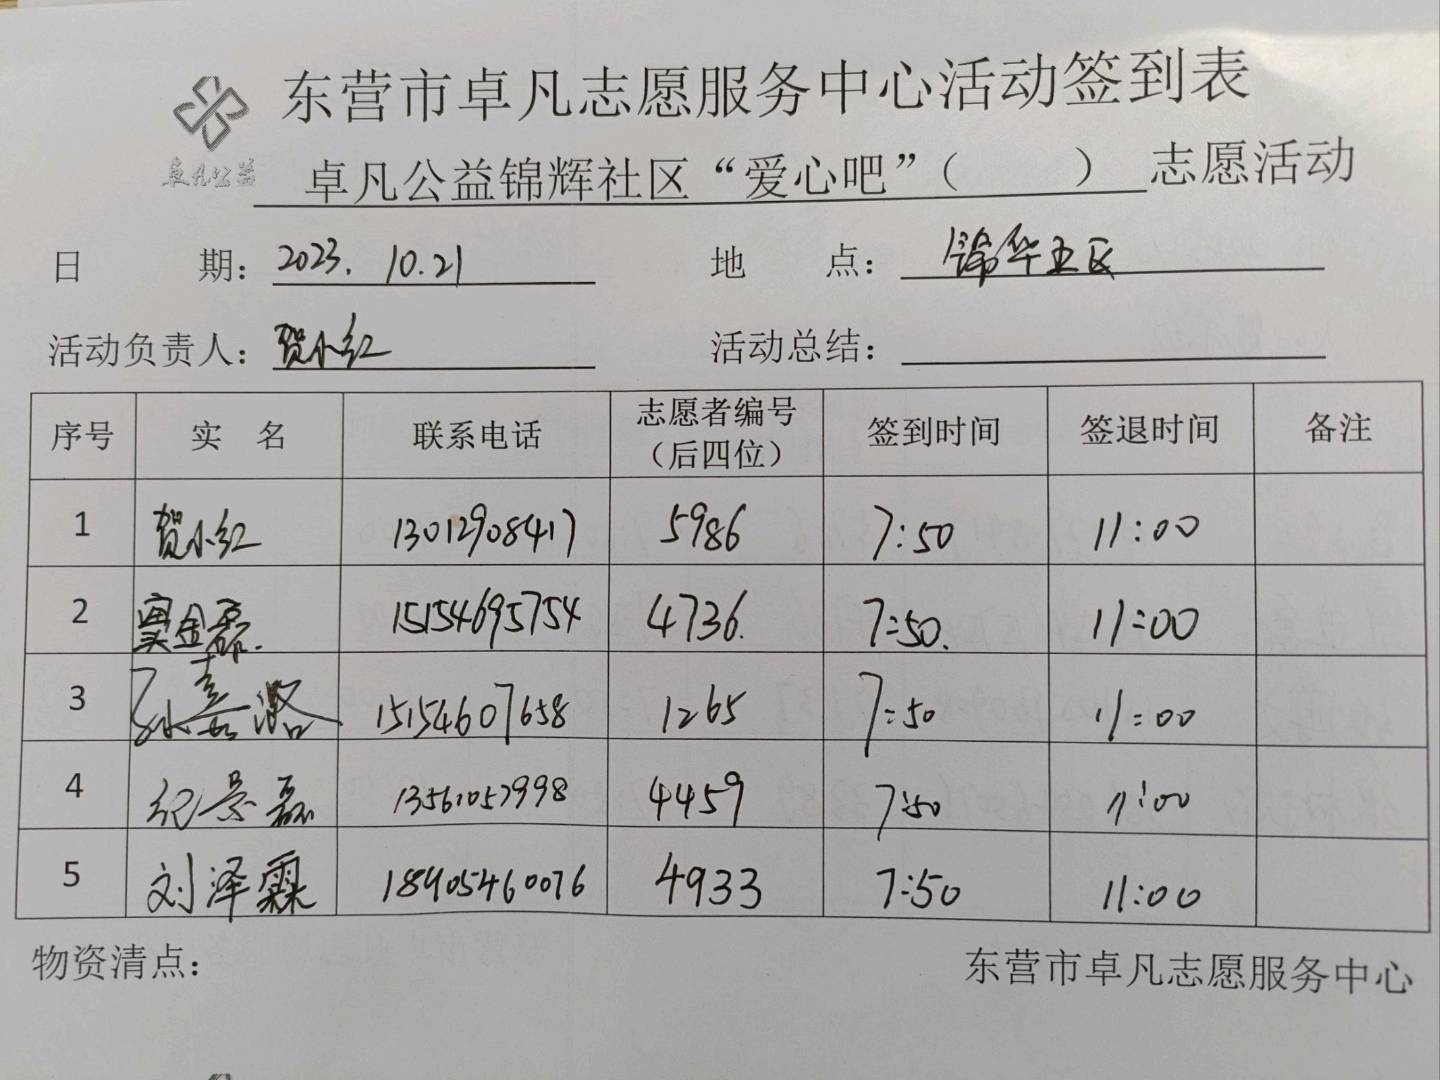 东营市卓凡志愿服务中心活动签到表
卓凡公益
卓凡公益锦辉社区“爱心吧”（　　）志愿活动
日期：2023.10.21 地点：锦华五区
活动负责人：贺小红 活动总结：
序号 实名 联系电话 志愿者编号（后四位） 签到时间 签退时间 备注
1 贺小红 13012908417 5986 7:50 11:00
2 窦金磊. 15154695754 4736. 7:50. 11:00
3 孙嘉潞 15154607658 1265 7:50 11:00
4 纪景磊 13561057998 4459 7:50 11:00
5 刘泽霖 18905460076 4933 7:50 11:00
物资清点： 东营市卓凡志愿服务中心